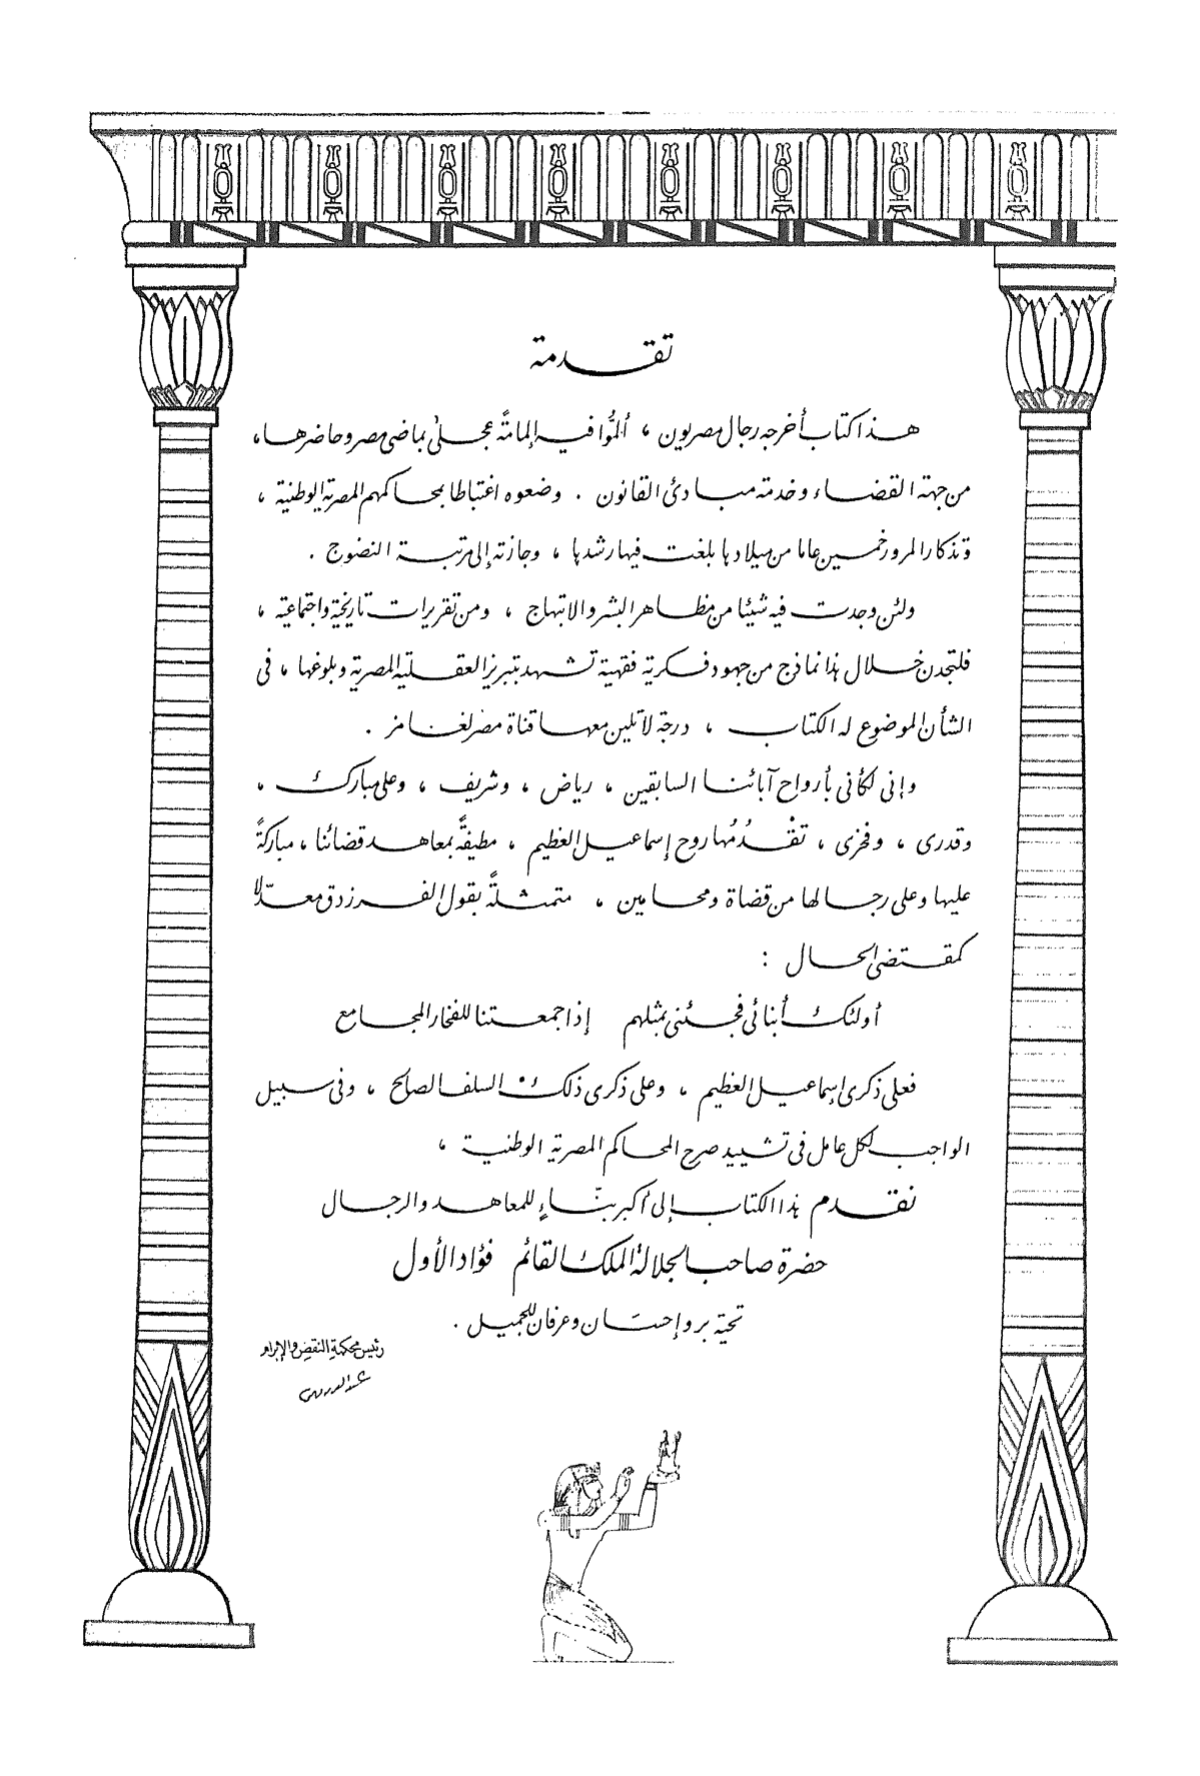 تقدمة
هذا كتاب أخرجه رجال مصريون ، ألمُّوا فيه إلمامةً عجلىٰ بماضى مصر وحاضرها،
من جهة القضاء وخدمته مبادئ القانون . وضعوه اغتباطا بمحاكمهم المصرية الوطنية ،
وتذكارا لمرور خمسين عاما من ميلادها بلغت فيها رشدها ، وجازته إلى مرتبة النضوج .
ولئن وجدت فيه شيئا من مظاهر البشر والابتهاج ، ومن تقريرات تاريخية واجتماعية ،
فلتجدن خلال هذا نماذج من جهود فكرية فقهية تشهد بتبريز العقلية المصرية وبلوغها ، فى
الشأن الموضوع له الكتاب ، درجة لا تلين معها قناة مصر لغامز .
وإنى لكأنى بأرواح آبائنا السابقين ، رياض ، وشريف ، وعلى مبارك ،
وقدرى ، وفخرى ، تقْدُمُها روح إسماعيل العظيم ، مطيفةً بمعاهد قضائنا ، مباركةً
عليها وعلى رجالها من قضاة ومحامين ، متمثلةً بقول الفرزدق معدّلا
كمقتضى الحال :
أولئك أبنائى فجئنى بمثلهم إذا جمعتنا للفخار المجامع
فعلى ذكرى إسماعيل العظيم ، وعلى ذكرى ذلك السلف الصالح ، وفى سبيل
الواجب لكل عامل فى تشييد صرح المحاكم المصرية الوطنية ،
نقدم هذا الكتاب إلى أكبر بنّاءٍ للمعاهد والرجال
حضرة صاحب الجلالة الملك القائم فؤاد الأول
تحية بر وإحسان وعرفان للجميل .
رئيس محكمة النقض والإبرام